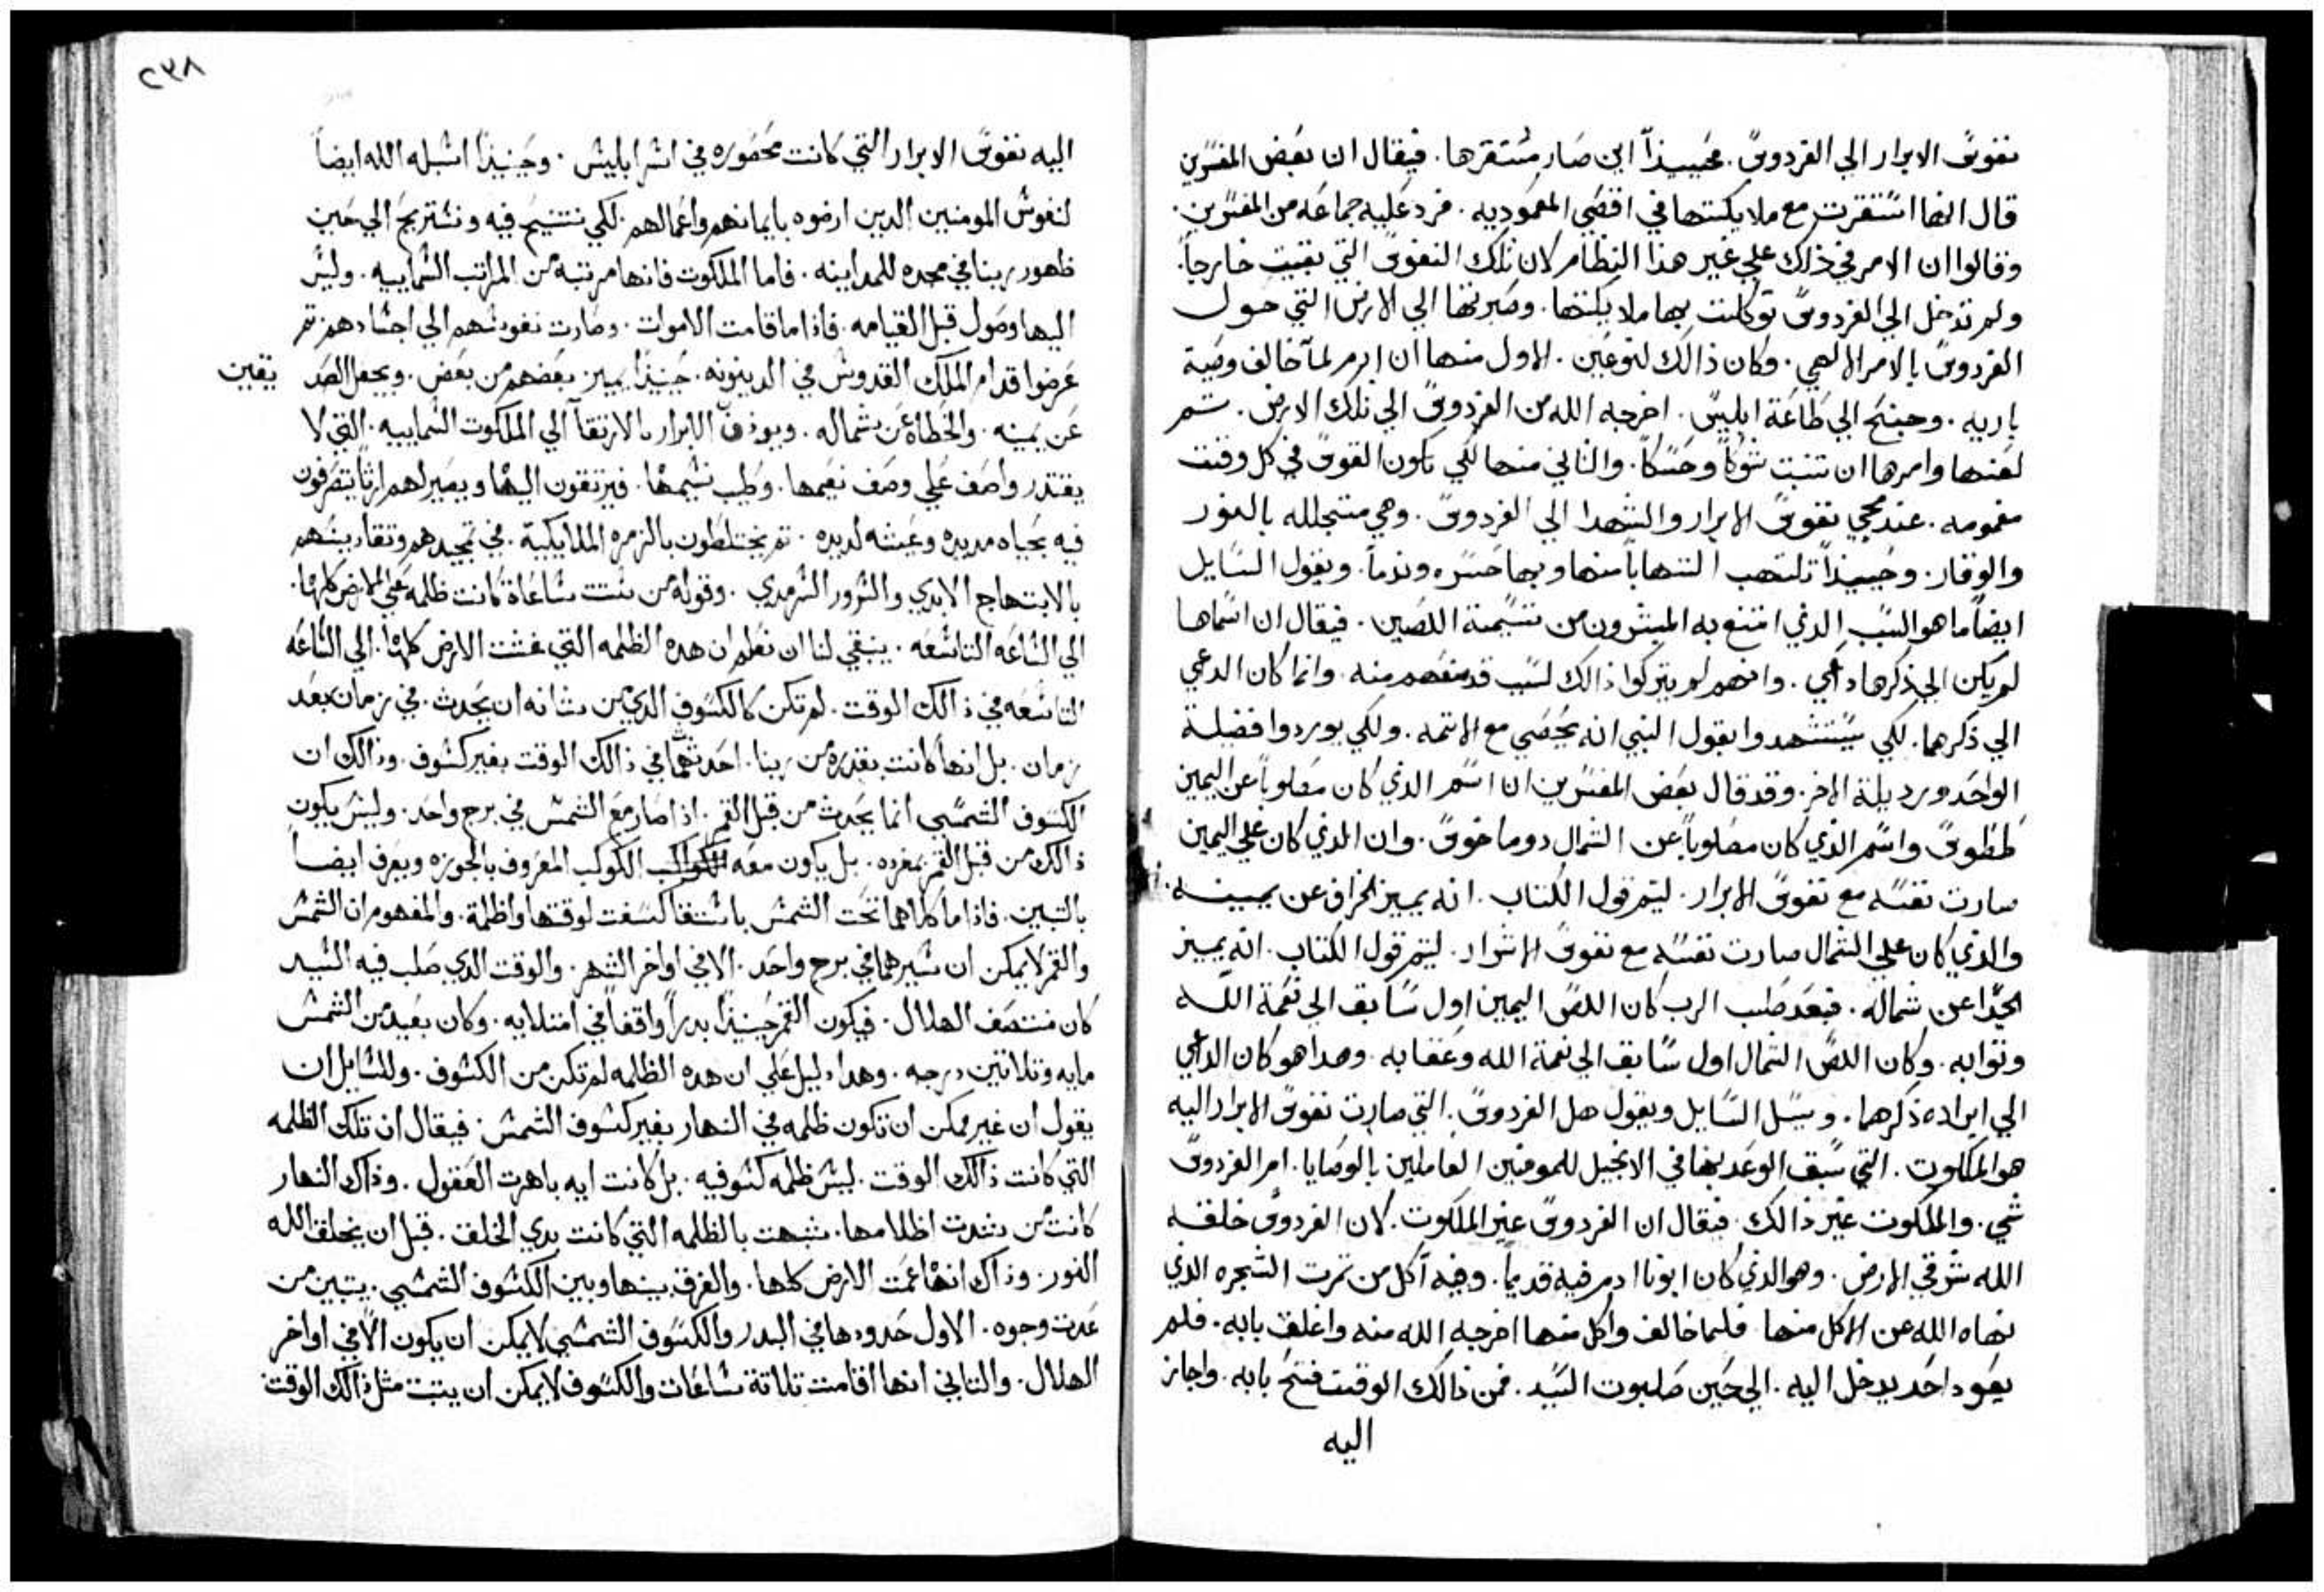 نفوس الابرار الي الفردوس. فحينيذاً اين صار مستقرها. فيقال ان بعض المفسرين
قال انها استقرت مع ملايكتها في اقصي المعموديه. فرد عليه جماعه من المفسرين.
وقالوا ان الامر في ذلك علي غير هذا النظام لان تلك النفوس التي بقيت خارجاً.
ولم تدخل الي الفردوس توكلت بها ملايكتها. وصيرتها الي الارض التي حول
الفردوس بالامر الالهي. وكان ذالك لنوعين. الاول منها ان ادم لما خالف وصية
باريه. وجنح الي طاعة ابليس. اخرجه الله من الفردوس الي تلك الارض. ثم
لعنها وامرها ان تنبت شوكاً وحسكاً. والثاني منها لكي تكون النفوس في كل وقت
مغمومه. عند مجي نفوس الابرار والشهدا الي الفردوس. وهي متجلله بالنور
والوقار. وحينيذاً تلتهب التهاباً منها وبها حسره وندماً. ويقول السايل
ايضاً ما هو السبب الذي امتنع به المبشرون من تسمية اللصين. فيقال ان اسماها
لم يكن الي ذكرها داعي. وانهم لم يتركوا ذالك لسبب قد منعهم منه. وانما كان الدعي
الي ذكرهما. لكي يستشهدوا بقول النبي انه يحصي مع الاثمه. ولكي يوردوا فضيلة
الواحد ورديلة الاخر. وقد قال بعض المفسرين ان اسم الذي كان مصلوباً عن اليمين
طيطوس واسم الذي كان مصلوباً عن الشمال دوماخوس. وان الذي كان علي اليمين
صارت نفسه مع نفوس الابرار. ليتم قول الكتاب. انه يميز الخراف عن يمينه.
والذي كان علي الشمال صارت نفسه مع نفوس الاشرار. ليتم قول الكتاب. انه يميز
الجدا عن شماله. فبعد صلب الرب كان اللص اليمين اول سابق الي نعمة الله
وثوابه. وكان اللص الشمال اول سابق الي نقمة الله وعقابه. وهدا هو كان الداعي
الي ايراده ذكرهما. ويسل السايل ويقول هل الفردوس. التي صارت نفوس الابرار اليه
هو الملكوت. التي سبق الوعد بها في الانجيل للمومنين العاملين بالوصايا. ام الفردوس
شي. والملكوت غير ذالك. فيقال ان الفردوس غير الملكوت. لان الفردوس خلقه
الله شرقي الارض. وهو الذي كان ابونا ادم فيه قديماً. وفيه اكل من تمرت الشجره الذي
نهاه الله عن الاكل منها. فلما خالف واكل منها اخرجه الله منه واغلق بابه. فلم
يعود احد يدخل اليه. الي حين صلبوت السيد. فمن ذالك الوقت فتح بابه. واجاز
اليه
٢٣٨
اليه نفوس الابرار التي كانت محصوره في اسر ابليس. وحينيذاً اسبله الله ايضاً
لنفوس المومنين الدين ارضوه بايمانهم واعمالهم. لكي تتنيح فيه وتستريح الي حين
ظهور ربنا في مجده للمداينه. فاما الملكوت فانها مرتبه من المراتب السماييه. وليس
اليها وصول قبل القيامه. فاذا ما قامت الاموات. وصارت نفوسهم الي اجسادهم تم
عرضوا قدام الملك القدوس في الدينونه. حينيذاً يميز بعضهم من بعض. ويجعل الصديقين
عن يمينه. والخطاه عن شماله. ويوذن للابرار بالارتقا الي الملكوت السماييه. التي لا
يقتدر واصف علي وصف نعيمها. وطيب نسيمها. فيرتقون اليها ويصير لهم ارثاً يتصرفون
فيه بحياه مديده وعيشه لديده. تم يختلطون بالزمره الملايكية. في تمجيدهم وتقاديسهم
بالابتهاج الابدي والسرور السرمدي. وقوله من ستت ساعاة كانت ظلمه علي الارض كلها.
الي الساعه التاسعه. ينبغي لنا ان نعلم ان هده الظلمه التي غشت الارض كلها. الي الساعه
التاسعه في ذالك الوقت. لم تكن كالكسوف الدي من شانه ان يحدث. في زمان بعد
زمان. بل انها كانت بقدره من ربنا. احدثها في ذالك الوقت بغير كسوف. وذالك ان
الكسوف الشمسي انما يحدث من قبل القمر. اذا صار مع الشمس في برج واحد. وليس يكون
ذالك من قبل القمر بمفرده. بل يكون معه الكوكب المعروف بالجوزه ويعرف ايضاً
بالتنين. فاذا ما كلاهما تحت الشمس باستقا كسفت لوقتها واظلمة. والمفهوم ان الشمس
والقمر لا يمكن ان مسيرهما في برج واحد. الا في اواخر الشهر. والوقت الدي صلب فيه السيد
كان منتصف الهلال. فيكون القمر حينيذاً بدراً واقفاً في امتلايه. وكان بعيد من الشمس
مايه وتلاتين درجه. وهدا دليل علي ان هده الظلمه لم تكن من الكسوف. وللسايل ان
يقول ان غير ممكن ان تكون ظلمه في النهار بغير كسوف الشمس. فيقال ان تلك الظلمه
التي كانت ذالك الوقت. ليس ظلمه كسوفيه. بل كانت ايه باهرت العقول. وذاك النهار
كانت من شدت اظلامها. شبهت بالظلمه التي كانت بدي الخلقه. قبل ان يخلق الله
النور. وذاك انها عمت الارض كلها. والفرق بينها وبين الكسوف الشمسي. يتبين من
عدت وجوه. الاول حدودها في البدر والكسوف الشمسي لا يمكن ان يكون الا في اواخر
الهلال. والتاني انها اقامت تلاتة ساعات والكسوف لا يمكن ان يتبت مثل ذالك الوقت